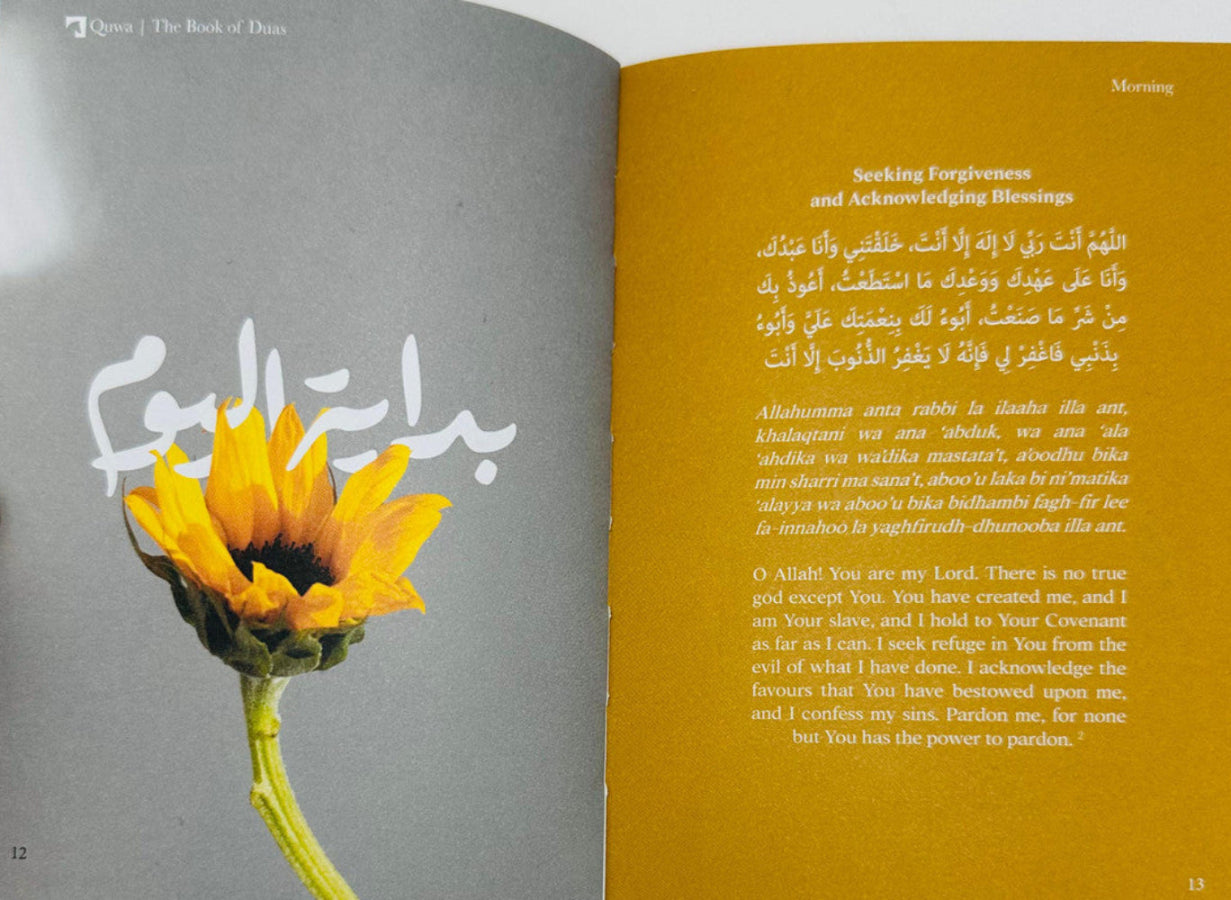 Quwa | The Book of Duas
بداية اليوم
12
Morning
Seeking Forgiveness
and Acknowledging Blessings
اللَّهُمَّ أَنْتَ رَبِّي لَا إِلَهَ إِلَّا أَنْتَ، خَلَقْتَنِي وَأَنَا عَبْدُكَ،
وَأَنَا عَلَى عَهْدِكَ وَوَعْدِكَ مَا اسْتَطَعْتُ، أَعُوذُ بِكَ
مِنْ شَرِّ مَا صَنَعْتُ، أَبُوءُ لَكَ بِنِعْمَتِكَ عَلَيَّ وَأَبُوءُ
بِذَنْبِي فَاغْفِرْ لِي فَإِنَّهُ لَا يَغْفِرُ الذُّنُوبَ إِلَّا أَنْتَ
Allahumma anta rabbi la ilaaha illa ant,
khalaqtani wa ana ‘abduk, wa ana ‘ala
‘ahdika wa wa’dika mastata’t, a’oodhu bika
min sharri ma sana’t, aboo’u laka bi ni’matika
‘alayya wa aboo’u bika bidhambi fagh-fir lee
fa-innahoo la yaghfirudh-dhunooba illa ant.
O Allah! You are my Lord. There is no true
god except You. You have created me, and I
am Your slave, and I hold to Your Covenant
as far as I can. I seek refuge in You from the
evil of what I have done. I acknowledge the
favours that You have bestowed upon me,
and I confess my sins. Pardon me, for none
but You has the power to pardon. 2
13